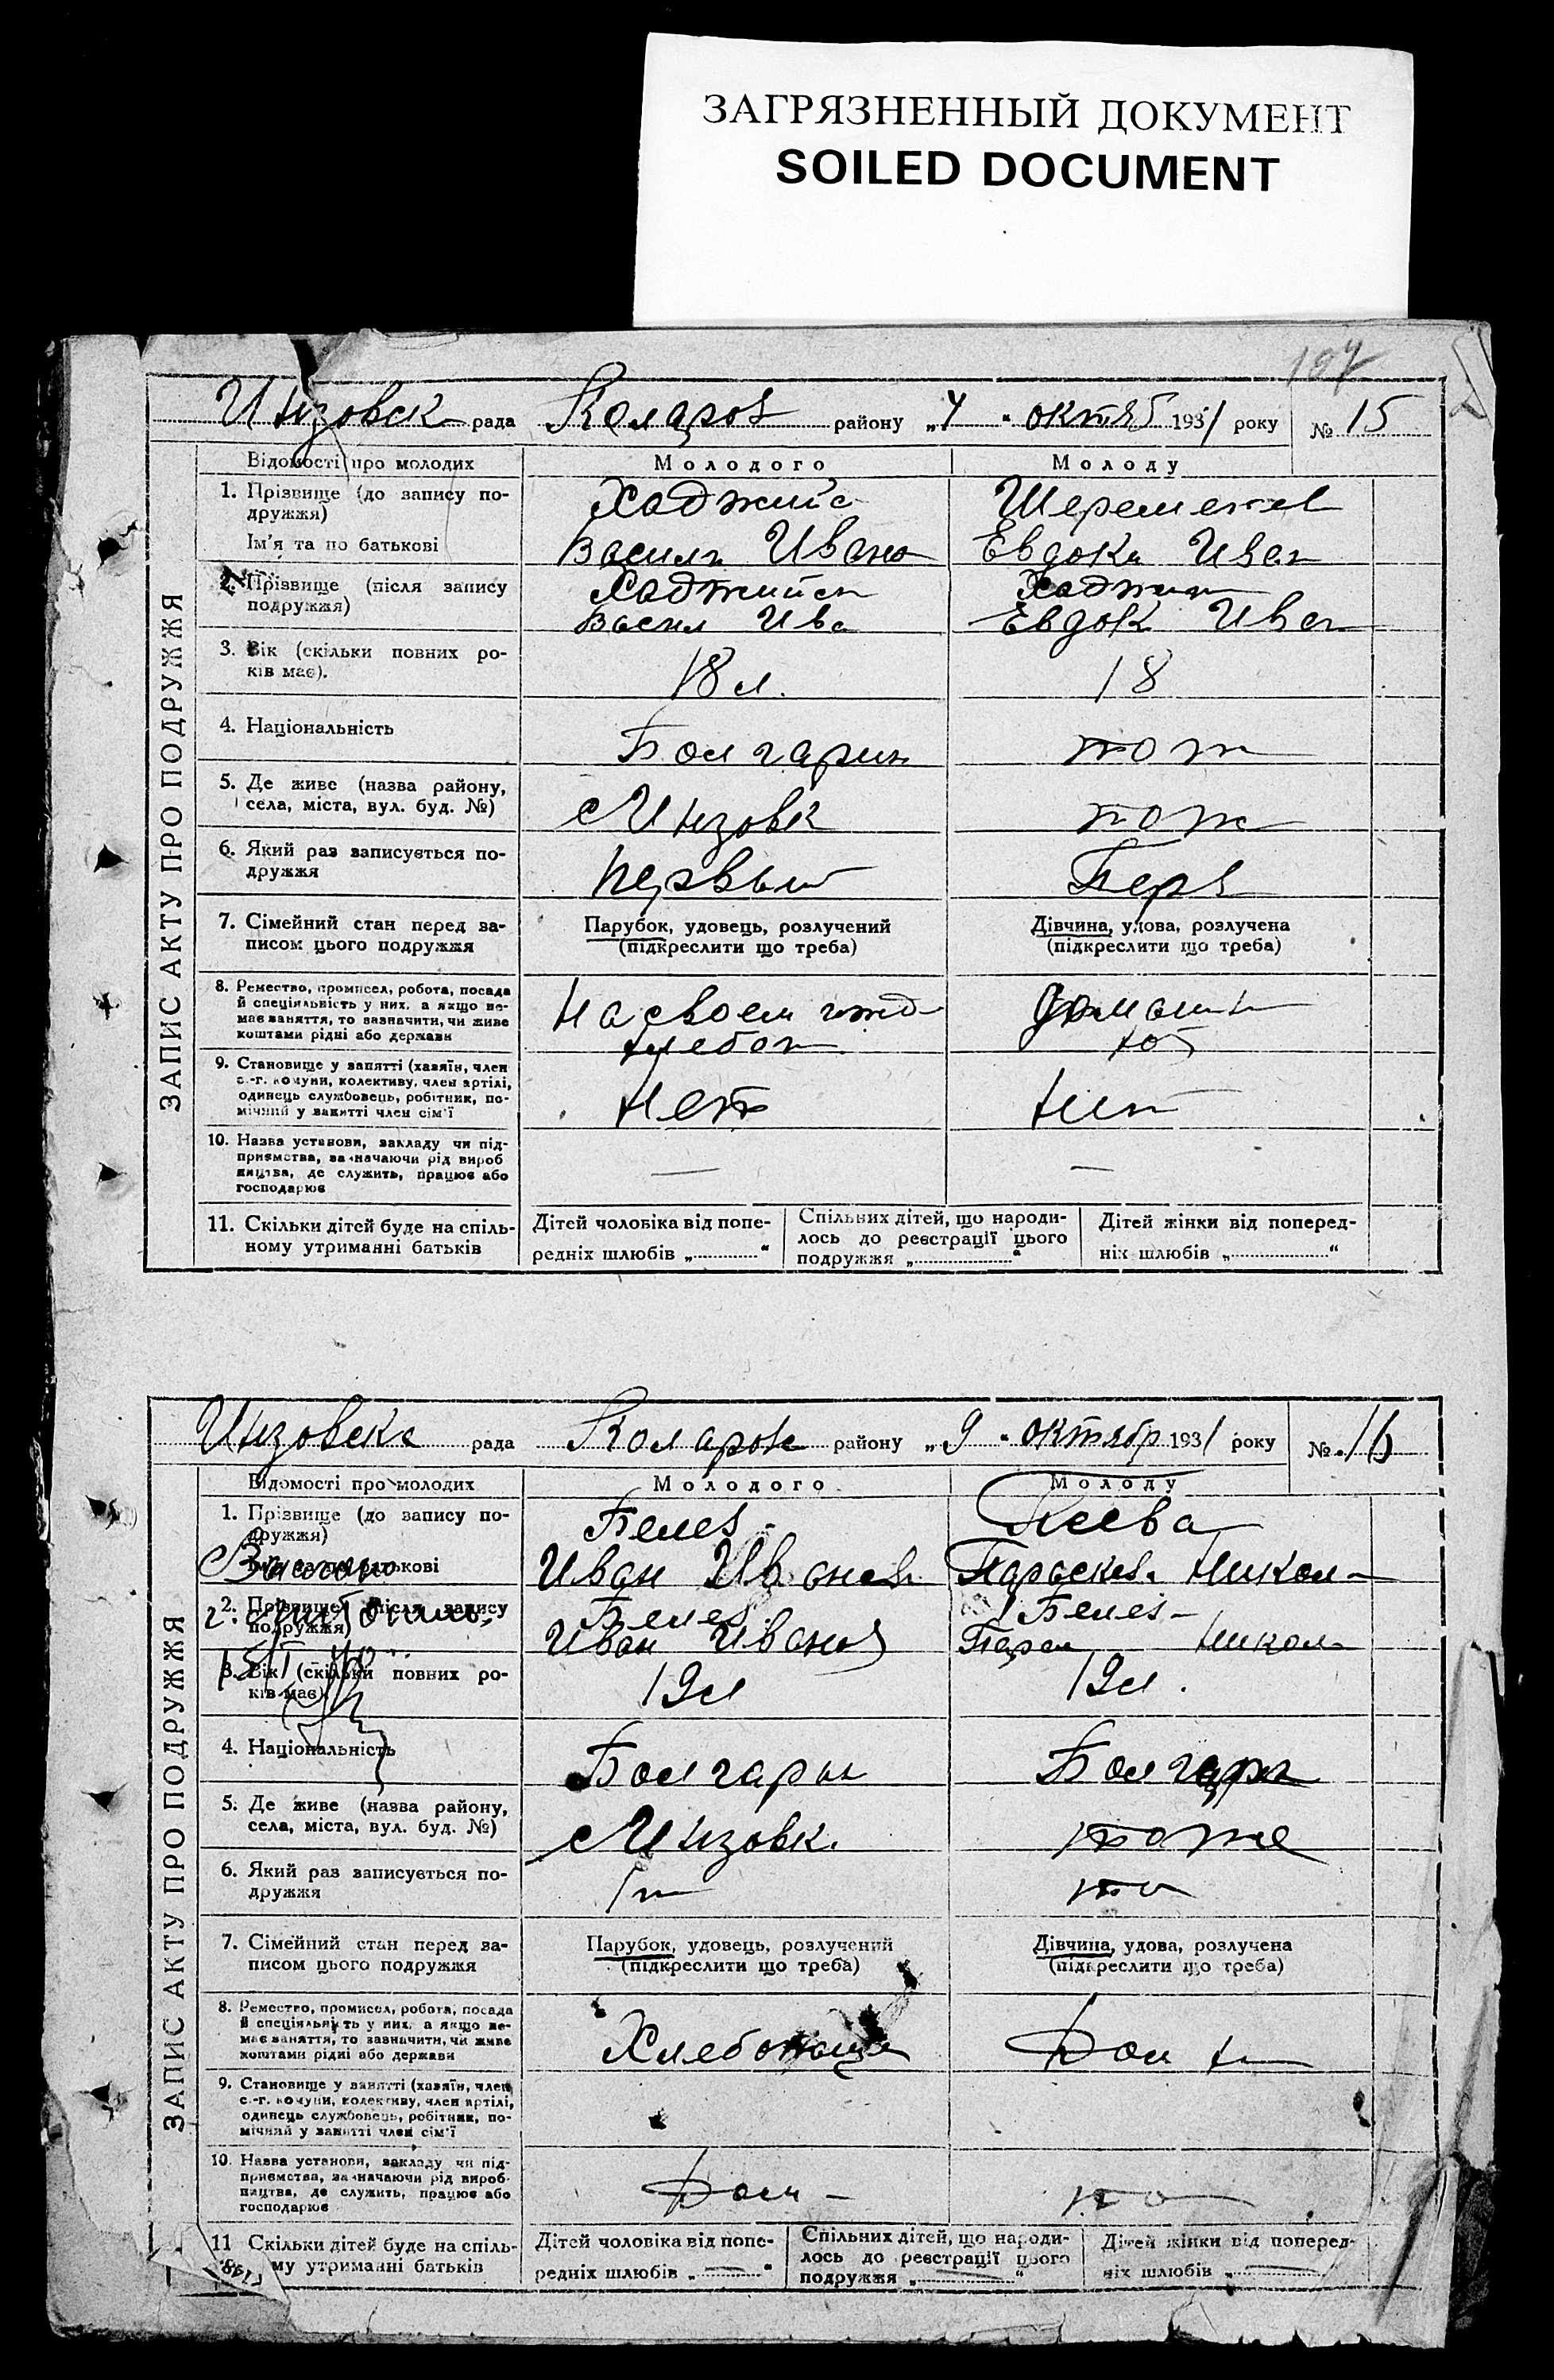 ЗАГРЯЗНЕННЫЙ ДОКУМЕНТ
SOILED DOCUMENT
107
Инзовск рада Коларов району „4 " октяб 1931 року № 15
ЗАПИС АКТУ ПРО ПОДРУЖЖЯ
Відомості про молодих Молодого Молоду
1. Прізвище (до запису по-
дружжя) Хаджийс
Ім'я та по батькові Василь Ивано Евдоки Иван
2. Прізвище (після запису Хаджийск Хаджи
подружжя) Васил Ива Евдок Иван
3. Вік (скільки повних ро-
ків має). 18 л. 18
4. Національність Болгарин тож
5. Де живе (назва району,
села, міста, вул. буд. №) с Инзовк тож
6. Який раз записується по-
дружжя Первый Перв
7. Сімейний стан перед за- Парубок, удовець, розлучений Дівчина, удова, розлучена
писом цього подружжя (підкреслити що треба) (підкреслити що треба)
8. Ремество, промисел, робота, посада
й спеціяльність у них, а якщо не-
має заняття, то зазначити, чи живе На своем
коштами рідні або держави
9. Становище у занятті (хазяїн, член
с.-г. комуни, колективу, член артілі,
одинець службовець, робітник, по-
мічний у занятті член сім'ї Нет Нет
10. Назва установи, закладу чи під-
приємства, зазначаючи рід вироб
ництва, де служить, працює або — —
господарює
11. Скільки дітей буде на спіль- Дітей чоловіка від попе- Спільних дітей, що народи- Дітей жінки від поперед-
ному утриманні батьків редніх шлюбів „ " лось до реєстрації цього ніх шлюбів „ "
подружжя „ "
Инзовск рада Коларов району „9 " октябр 1931 року № 16
ЗАПИС АКТУ ПРО ПОДРУЖЖЯ
Відомості про молодих Молодого Молоду
1. Прізвище (до запису по-
дружжя) Пеева
Ім'я та по батькові Иван Иванов Параскев Никол
2. Прізвище (після запису
подружжя) Иван Иванов Парас Никол
3. Вік (скільки повних ро-
ків має). 19 л 19 л.
4. Національність Болгары Болгары
5. Де живе (назва району,
села, міста, вул. буд. №) с Инзовк. тоже
6. Який раз записується по-
дружжя 1 то
7. Сімейний стан перед за- Парубок, удовець, розлучений Дівчина, удова, розлучена
писом цього подружжя (підкреслити що треба) (підкреслити що треба)
8. Ремество, промисел, робота, посада
й спеціяльність у них, а якщо не-
має заняття, то зазначити, чи живе
коштами рідні або держави Хлебопаш Дом
9. Становище у занятті (хазяїн, член
с.-г. комуни, колективу, член артілі,
одинець службовець, робітник, по-
мічний у занятті член сім'ї
10. Назва установи, закладу чи під-
приємства, зазначаючи рід вироб-
ництва, де служить, працює або Дом то
господарює
11 Скільки дітей буде на спіль- Дітей чоловіка від попе- Спільних дітей, що народи- Дітей жінки від поперед-
ному утриманні батьків редніх шлюбів „ — " лось до реєстрації цього ніх шлюбів „ —
подружжя „ — "